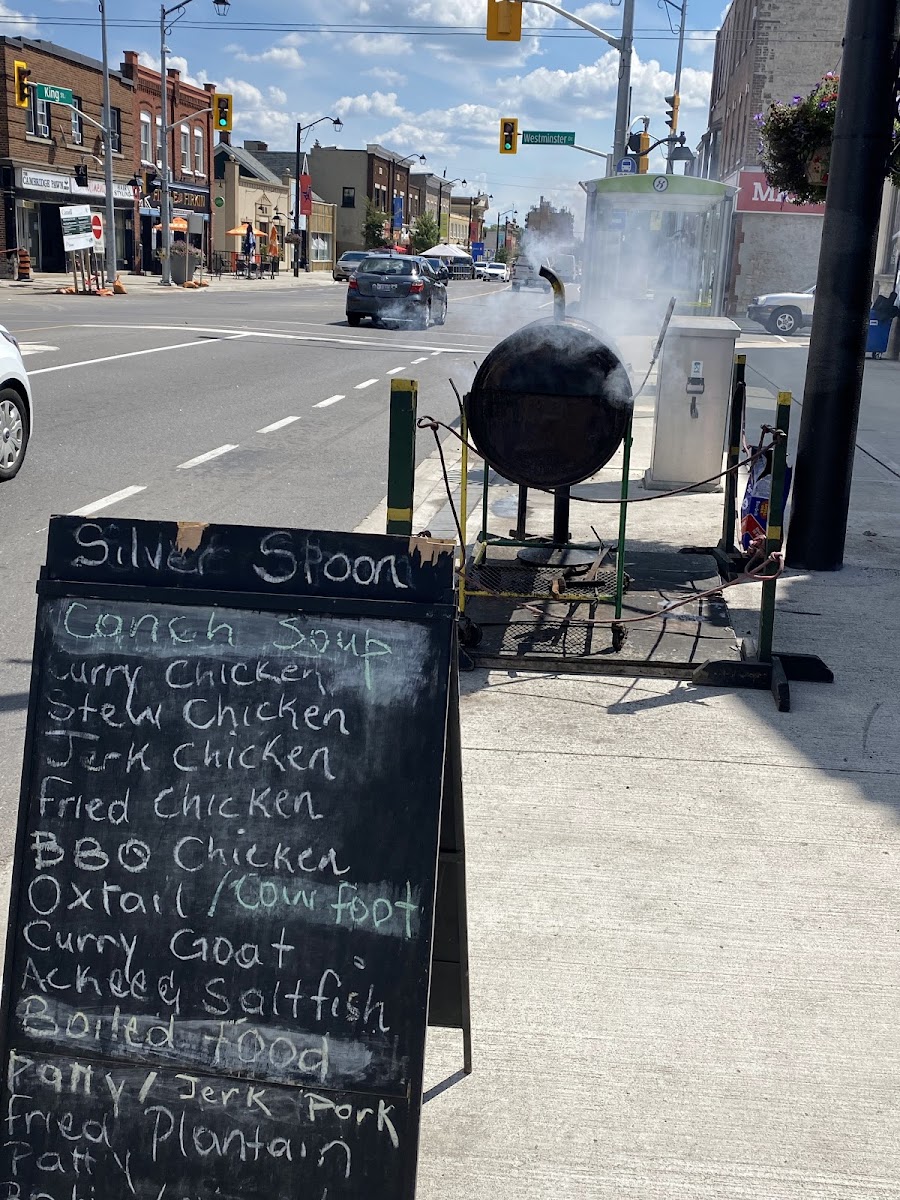 King St.
Westminster
CAMBRIDGE PAWN
FIRKIN
Silver Spoon
Conch Soup
Curry Chicken
Stew Chicken
Jerk Chicken
Fried Chicken
BBQ Chicken
Oxtail / Cow foot
Curry Goat
Ackee & Saltfish
Boiled Food
Patty / Jerk Pork
Fried Plantain
Patty